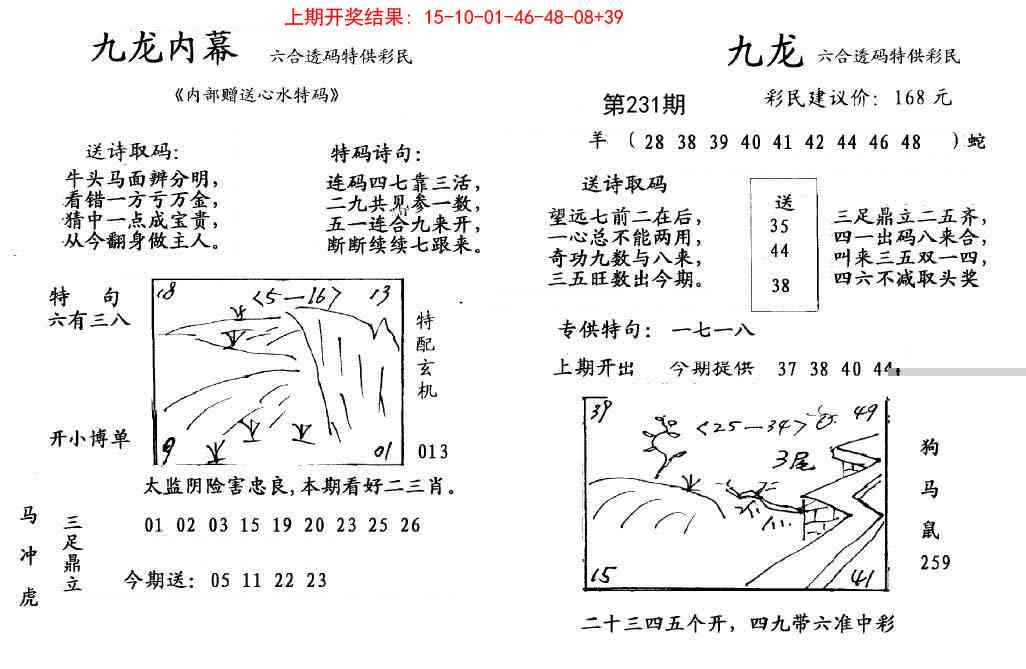 上期开奖结果: 15-10-01-46-48-08+39
九龙内幕 六合透码特供彩民
《内部赠送心水特码》
送诗取码:
牛头马面辨分明,
看错一方亏万金,
猜中一点成宝贵,
从今翻身做主人。
特码诗句:
连码四七靠三活,
二九共见参一数,
五一连合九来开,
断断续续七跟来。
特 句
六有三八
开小博单
18 〈5—16〉 13
9 01
特配玄机
013
太监阴险害忠良,本期看好二三肖。
马冲虎
三足鼎立
01 02 03 15 19 20 23 25 26
今期送: 05 11 22 23
九龙 六合透码特供彩民
第231期 彩民建议价: 168 元
羊 ( 28 38 39 40 41 42 44 46 48 ) 蛇
送诗取码
望远七前二在后,
一心总不能两用,
奇功九数与八来,
三五旺数出今期。
送
35
44
38
三足鼎立二五齐,
四一出码八来合,
叫来三五双一四,
四六不减取头奖
专供特句: 一七一八
上期开出 今期提供 37 38 40 44
39 〈25—34〉 49
3尾
15 41
狗
马
鼠
259
二十三四五个开, 四九带六准中彩